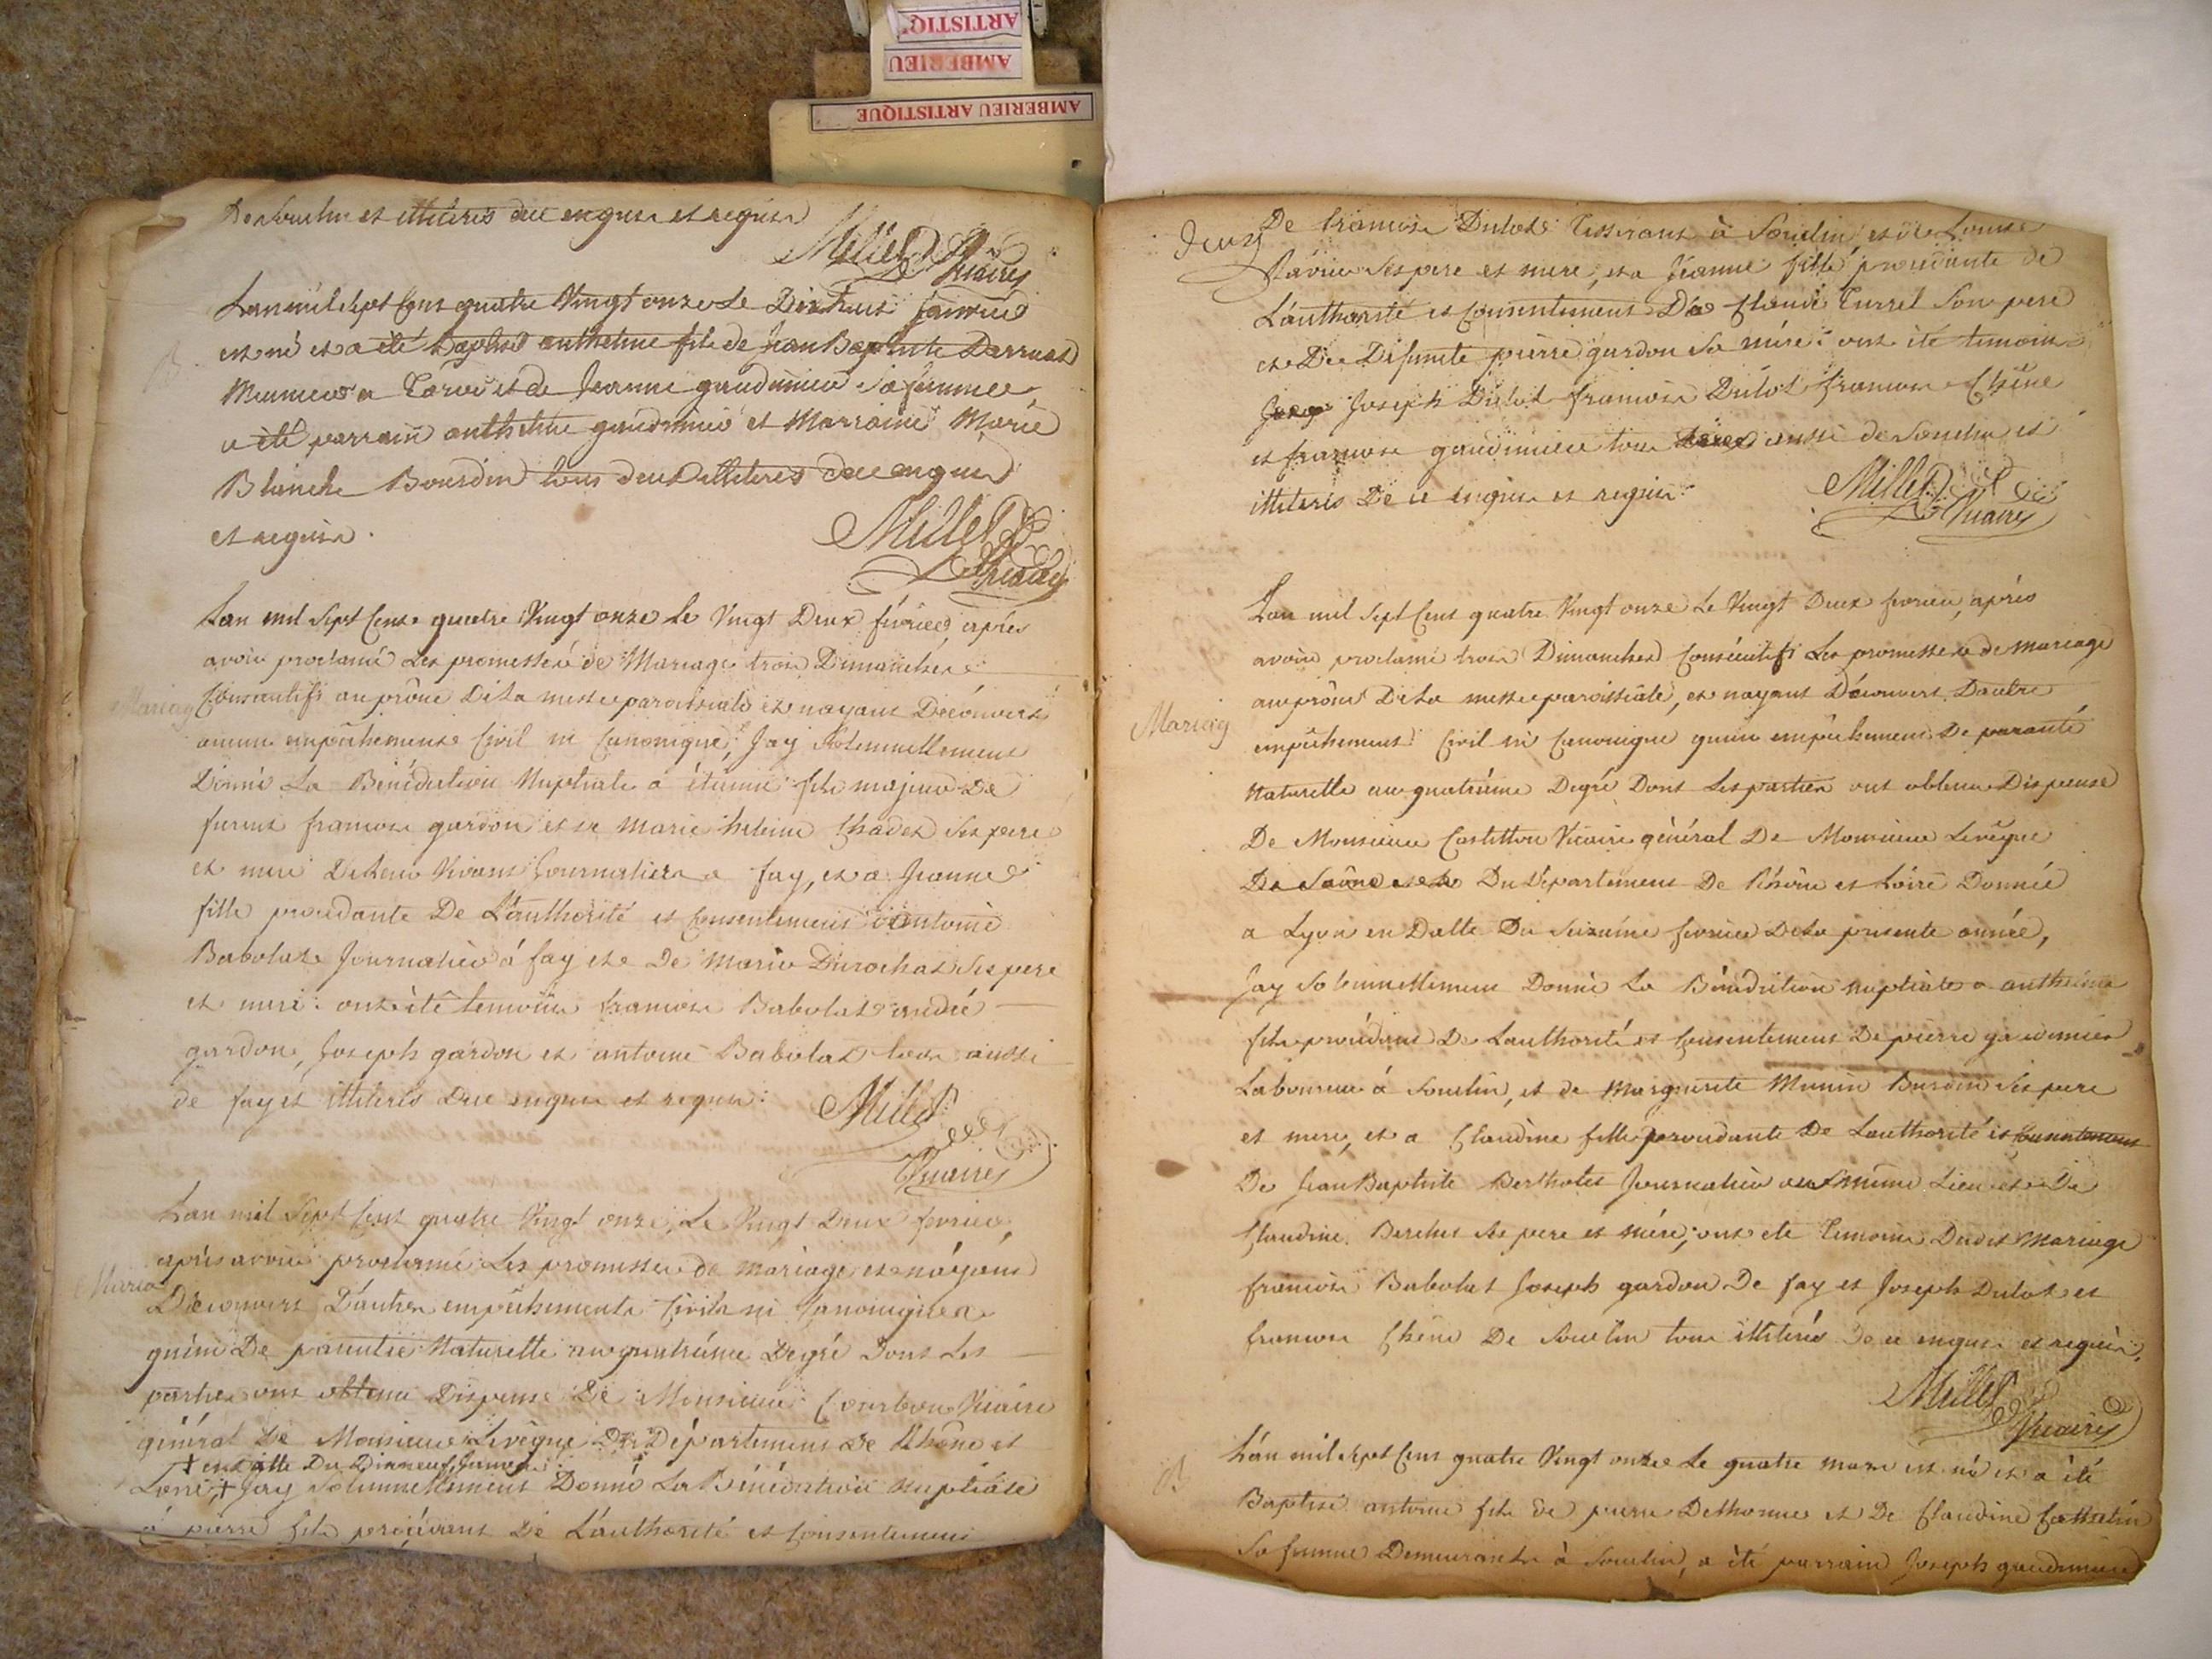 ARTISTIQ
AMBERIEU
AMBERIEU ARTISTIQUE
De Soudin et illiteres de ce enquis et requis
Millet Vicaire
Lan mil sept Cens quatre Vingt onze Le Dix huit janvier
est né et a été Baptisé anthelme fils de Jean Baptiste Darruat
Meunier a et de Jeanne gaudimier sa femme,
a été parrain anthelme gaudimier et Marraine Marie
Blanche Bourdin tous deux illiteres de ce enquis
et requis.
Millet
Vicaire
B
Lan mil Sept Cens quatre Vingt onze le Vingt Deux février, après
avoir proclamé Les promesses de Mariage trois Dimanches
Mariag Consecutifs au prône De La messe paroissiale et nayant Découvert
aucun empêchement Civil ni Canonique, Jay Solemnellement
Donné La Bénédiction Nuptiale a étienne fils majeur De
furent francois gardon et de Marie heleine Chadet Ses pere
et mere De leur Vivant Journaliers a fay, et a Jeanne
fille procedante De L'authorité et Consentement d'antoine
Babolat Journalier à fay et De Marie Durochat Ses pere
et mere: ont été temoins francois Babolat andré
gardon, Joseph gardon et antoine Babolat tous aussi
de fay et illiterés De ce enquis et requis:
Millet
Vicaire
Lan mil Sept Cent quatre Vingt onze, Le Vingt Deux fevrier,
après avoir proclamé Les promesses de mariage et nayant
Maria Découvert D'autres empêchements Civils ni Canoniques
qu'un De parenté Naturelle au quatriéme Degré Dont Les
parties ont obtenu Dispense De Monsieur Courbon Vicaire
général De Monsieur Levêque Du Département De Rhône et
+ en datte Du Dixneuf Janvier
Loire, + Jay Solemnellement Donné La Bénédiction Nuptiale
à pierre fils procédant De L'authorité et Consentement
Deux
De francois Dulot Tisserant à Soudin et de Louise
Ravier Ses pere et mere, et a Jeanne fille procedante de
L'authorité et Consentement De Claude Turrel Son pere
et De Defunte pierre gardon Sa mére: ont été temoins
Joseph Dulot francois Dulot francois Chêne
et francois gaudimier tous aussi de Soudin et
illiterés De ce enquis et requis.
Millet Vicaire
Lan mil Sept Cens quatre Vingt onze Le Vingt Deux fevrier, après
avoir proclamé trois Dimanches Consécutifs Les promesses de mariage
au prône De La messe paroissiale, et nayant Découvert Dautre
Mariag
empêchement Civil ni Canonique quun empêchement De paranté
Naturelle au quatriéme Degré Dont Les parties ont obtenu Dispense
De Monsieur Castillon Vicaire général De Monsieur Levêque
Du Département De Rhône et Loire Donnée
a Lyon en Datte Du Seiziéme fevrier De La presente année,
Jay Solemnellement Donné La Bénédiction Nuptiale a anthelme
fils procédant De Lauthorité et Consentement De pierre gaudimier
Laboureur à Soudin, et de Marguerite Munin Burdin Ses pere
et mere, et a Claudine fille procedante De Lauthorité et Consentement
De Jean Baptiste Bertholet Journalier au même Lieu et De
Claudine Berchet Ses pere et mére; ont été Temoins Dudit Mariage
francois Babolat Joseph gardon De fay et Joseph Dulot et
francois Chêne De Soudin tous illiterés De ce enquis et requis.
Millet
Vicaire
B
Lan mil Sept Cens quatre Vingt onze Le quatre mars est né et a été
Baptisé antoine fils de pierre Dethomas et De Claudine Cattelin
Sa femme Demeurants à Soudin, a été parrain Joseph gaudimier